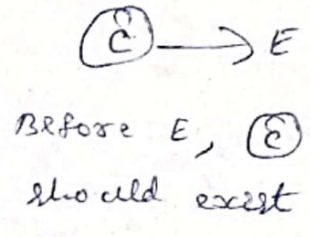 Ĉ → E
Before E, Ĉ
should exist